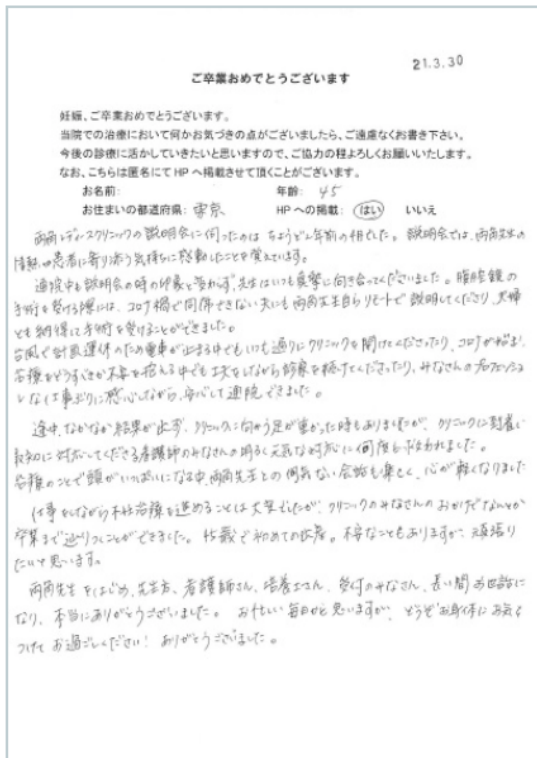 21.3.30
ご卒業おめでとうございます
妊娠、ご卒業おめでとうございます。
当院での治療において何かお気づきの点がございましたら、ご遠慮なくお書き下さい。
今後の診療に活かしていきたいと思いますので、ご協力の程よろしくお願いいたします。
なお、こちらは匿名にて HP へ掲載させて頂くことがございます。
お名前: 年齢: 45
お住まいの都道府県: 東京 HP への掲載: はい いいえ
両角レディースクリニックの説明会に伺ったのは ちょうど2年前の4月でした。説明会では、両角先生の
情熱と患者に寄り添う気持ちに感動したことを覚えています。
通院中も説明会の時の印象と変わらず、先生はいつも真摯に向き合ってくださいました。腹腔鏡の
手術を受ける際には、コロナ禍で同伴できない夫にも両角先生自らリモートで説明してくださり、夫婦
とも納得して手術を受けることができました。
台風で計画運休のため電車が止まる中でもいつも通りにクリニックを開けてくださったり、コロナが始まり
治療をどうすべきか不安を抱える中でも工夫をしながら診察を続けてくださったり、みなさんのプロフェッショ
ナルな仕事ぶりに感心しながら、安心して通院できました。
途中、なかなか結果が出ず、クリニックに向かう足が重かった時もありましたが、クリニックに到着し
最初に対応してくださる看護師のみなさんの明るく元気な対応に何度も救われました。
治療のことで頭がいっぱいになる中、両角先生との何気ない会話も楽しく、心が軽くなりました
仕事をしながら不妊治療を進めることは大変でしたが、クリニックのみなさんのおかげでなんとか
卒業まで辿りつくことができました。45歳で初めての出産。不安なこともありますが、頑張り
たいと思います。
両角先生をはじめ、先生方、看護師さん、培養士さん、受付のみなさん、長い間お世話に
なり、本当にありがとうございました。お忙しい毎日かと思いますが、どうぞお身体にお気を
つけて お過ごしください! ありがとうございました。